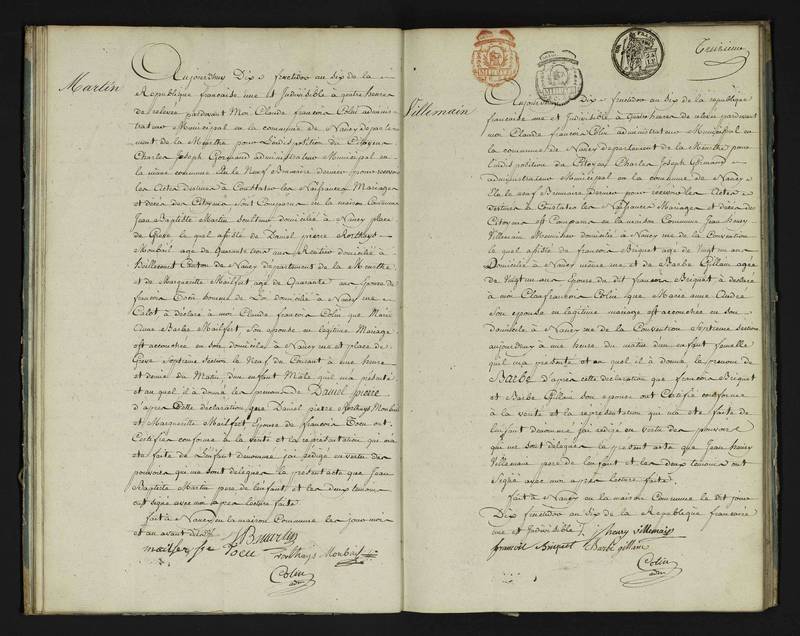 Martin
Aujourdhuy Dix fructidor an six de la
Republique francaise une et Indivisible à quatre heures
de relevée pardevant Moi Claude francois Colin adminis-
trateur Municipal en la commune de Nancy departe-
ment de la Meurthe pour Lindisposition du Citoyen
Charles Joseph administrateur Municipal en
la même commune Elu le Neuf Brumaire dernier pour recevoir
les Actes destinés à Constater les Naissances Mariages
et décés des Citoyens sont Comparus en la maison Commune
Jean Baptiste Martin domicilié à Nancy place
de Greve le quel assisté de Daniel pierre Rorthays
Monbail agé de Quarante trois ans Rentier domicilié à
Canton de Nancy département de la Meurthe
et de Marguerite Mailfert agée de Quarante ans Epouse de
francois Tocu de La domicilié à Nancy rue
Calot à déclaré à moi Claude francois Colin que Marie
Anne Barbe Mailfert, Son épouse en legitime Mariage
est accouchée en son domicile à Nancy rue et place de
Greve Septieme section le Neuf du Courant à une heure
et demie du Matin, dun enfant Male quil ma présenté
et au quel il à donné les prenoms de Daniel pierre
d'après Cette déclaration que Daniel pierre Rorthays Monbail
et Marguerite Mailfert Epouse de francois Tocu ont
Certifiée conforme à la verité et la représentation qui ma
été faite de Lenfant denommé jai rédigé en vertu des
pouvoirs qui me sont délégués le présent acte que Jean
Baptiste Martin pere de lenfant et les deux temoins
ont signé avec moi après lecture faite
fait à Nancy en la maison Commune les jour mois
et an avant dits
JB martin
mailfer fe Tocu Rorthays Monbail
Colin
adm
Treizieme
Villemain
Aujourdhuy Dix fructidor an Six de la republique
francaise une et Indivisible à Quatre heures de relevée pardevant
moi Claude francois Colin administrateur Municipal en
la commune de Nancy departement de la Meurthe pour
Lindisposition du Citoyen Charles Joseph
administrateur Municipal en la commune de Nancy
Elu le neuf Brumaire dernier pour recevoir les Actes
destinés à Constater les Naissances Mariages et décés des
Citoyens est Comparu en la maison Commune Jean henry
Villemain Menuisier domicilié à Nancy rue de la Convention
le quel assisté de francois Briquet agé de Vingt un ans
Domicilié à Nancy même rue et de Barbe Gillain agée
de Vingt un ans Epouse du dit francois Briquet à déclaré
à moi Claude francois Colin que Marie anne André
Son épouse en legitime mariage est accouchée en son
domicile à Nancy rue de la Convention Septieme section
aujourdhuy à une heure du matin dun enfant femelle
quil ma présenté et au quel il à donné le prenom de
Barbe d'après cette déclaration que francois Briquet
et Barbe Gillain Son épouse ont Certifiée conforme
à la verité et la représentation qui ma été faite de
Lenfant denommé jai rédigé en vertu des pouvoirs
qui me sont délégués le présent acte que Jean henry
Villemain pere de lenfant et les deux temoins ont
Signé avec moi après lecture faite.
fait à Nancy en la maison Commune le dit jour
Dix fructidor an Six de la Republique francaise
une et Indivisible J. henry villemain
francois Briquet Barbe gillain
Colin
adm